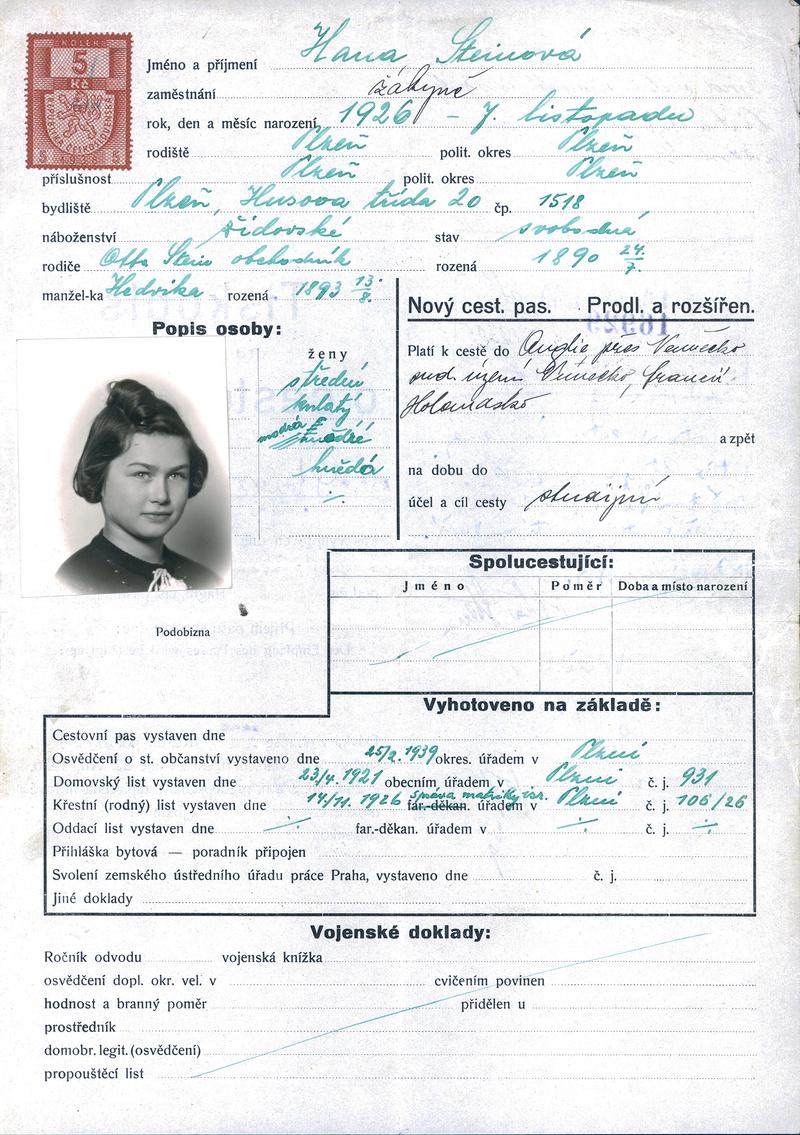 KOLEK
5
Kč
1938
Jméno a příjmení Hana Steinová
zaměstnání
rok, den a měsíc narození 1926 - 7. listopadu
rodiště Plzeň polit. okres Plzeň
příslušnost Plzeň polit. okres Plzeň
bydliště Plzeň, Husova třída 20 čp. 1518
náboženství židovské stav svobodná
rodiče Otto Stein obchodník rozená 1890 24./7.
manžel-ka Hedvika rozená 1893 13./8.
Nový cest. pas. Prodl. a rozšířen.
Popis osoby:
ženy
střední
kulatý
modré
hnědá
./.
Platí k cestě do Anglie přes Německo
Německo, Francii
Holandsko
a zpět
na dobu do
účel a cíl cesty studijní
Spolucestující:
Jméno Poměr Doba a místo narození
Podobizna
Vyhotoveno na základě:
Cestovní pas vystaven dne
Osvědčení o st. občanství vystaveno dne 25/2. 1939 okres. úřadem v Plzni
Domovský list vystaven dne 23/4. 1921 obecním úřadem v Plzni č. j. 931
správa matriky isr.
Křestní (rodný) list vystaven dne 14/11. 1926 far.-děkan. úřadem v Plzni č. j. 106/26
Oddací list vystaven dne ./. far.-děkan. úřadem v ./. č. j. ./.
Přihláška bytová — poradník připojen
Svolení zemského ústředního úřadu práce Praha, vystaveno dne č. j.
Jiné doklady
Vojenské doklady:
Ročník odvodu vojenská knížka
osvědčení dopl. okr. vel. v cvičením povinen
hodnost a branný poměr přidělen u
prostředník
domobr. legit. (osvědčení)
propouštěcí list